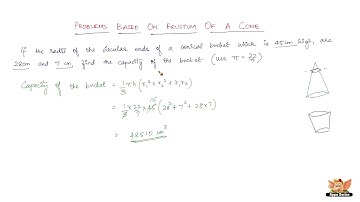 PROBLEMS BASED ON FRUSTUM OF A CONE
If the radii of the circular ends of a conical bucket which is 45cm high, are
28cm and 7 cm, find the capacity of the bucket (use π = 22/7)
Capacity of the bucket = 1/3 πh (r₁² + r₂² + r₁r₂)
= 1/3 × 22/7 × 45 15 (28² + 7² + 28×7)
= 48510 cm³